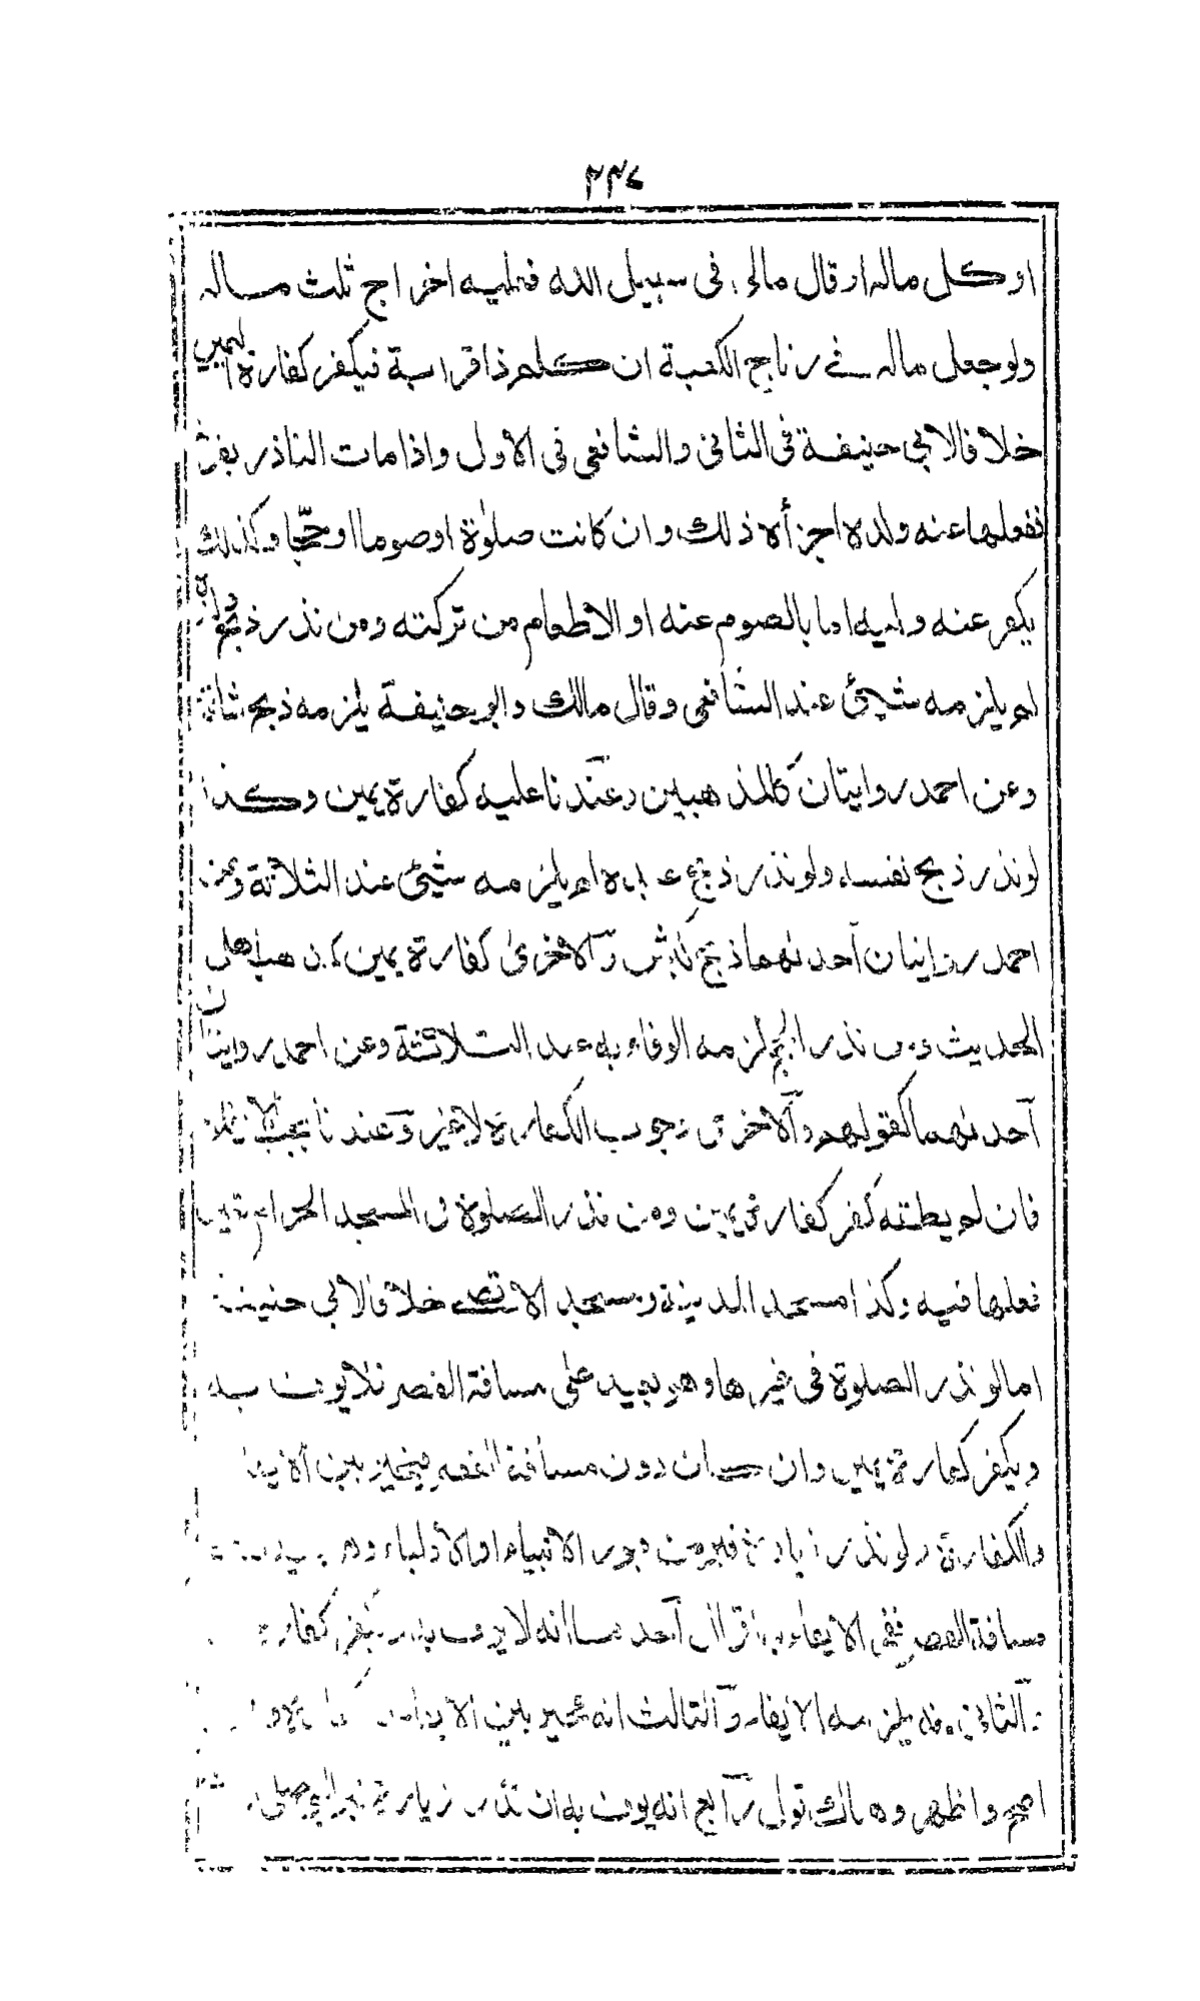 ٢٣٧
او كل ماله او قال مالى فى سبيل الله فعليه اخراج ثلث ماله
ولو جعل ماله فى رتاج الكعبة ان كلم ذا قرابة فيكفر كفارة اليمين
خلافا لابي حنيفة فى الثانى والشافعى فى الاول واذا مات الناذر
ففعلها عنه ولده اجزأه ذلك وان كانت صلوٰة او صوما او حجّا وكذلك
يكفر عنه وليه اما بالصوم عنه او الاطعام من تركته ومن نذر ذبح ولده
لم يلزمه شيئ عند الشافعى وقال مالك وابو حنيفة يلزمه ذبح شاة
وعن احمد روايتان كالمذهبين وعندنا عليه كفارة يمين وكذا
لو نذر ذبح نفسه ولو نذر ذبح عبده لم يلزمه شيئ عند الثلاثة وعن
احمد روايتان احدٰهما ذبح كبش والاخرىٰ كفارة يمين كمذهب اهل
الحديث ومن نذر الحج لزمه الوفاء به عند الثلاثة وعن احمد روايتان
احدٰهما كقولهم والاخرى وجوب الكفارة لا غير وعندنا يجب الايفاء
فان لم يطقه كفر كفارة يمين ومن نذر الصلوة فى المسجد الحرام تعين
فعلها فيه وكذا مسجد المدينة ومسجد الاقصے خلافا لابي حنيفة
اما لو نذر الصلوة فى غيرها وهو بعيد على مسافة القصر فلا يوف به
ويكفر كفارة يمين وان كان دون مسافة القصر فيخير بين الايفاء
والكفارة ولو نذر زيارة قبر من قبور الانبياء او الاولياء وهو بعيد
مسافة القصر ففى الايفاء به اقوال احدها انه لا يوف به ويكفر كفارة
والثانى انه يلزمه الايفاء والثالث انه مخير بين
اصح واظهر وهناك قول رابع انه يوف به ان نذر زيارة قبر النبي صلى